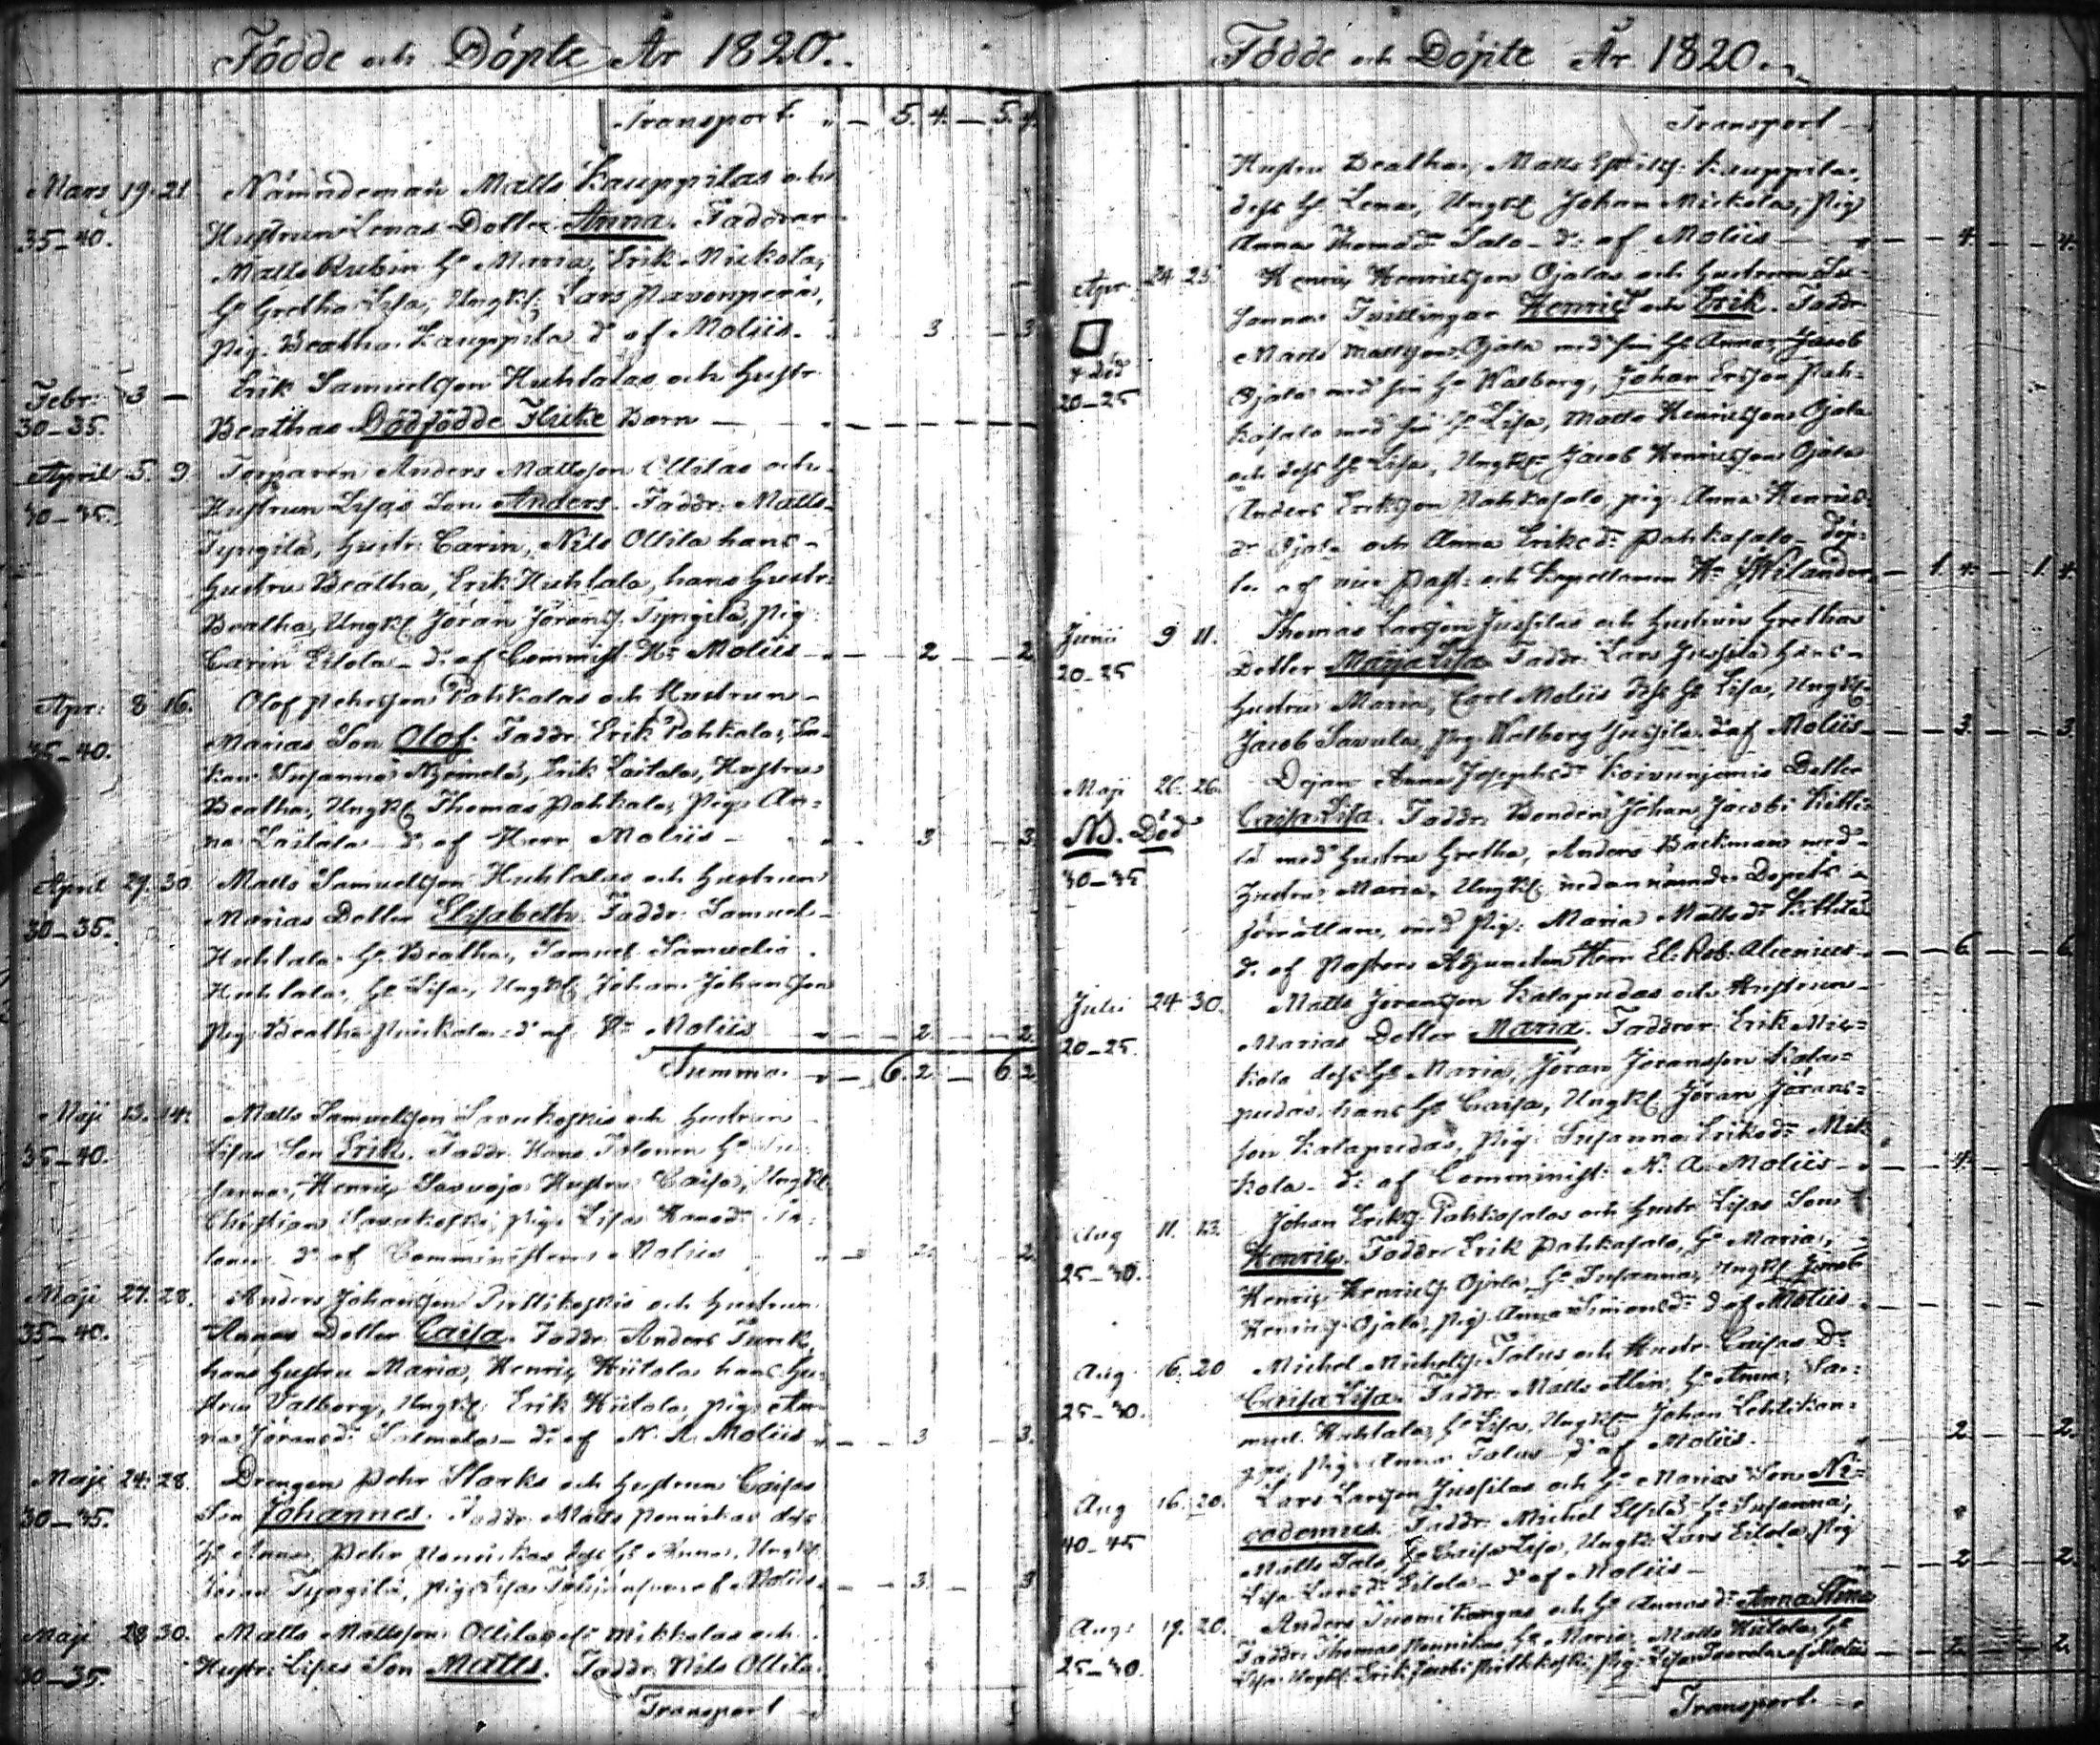 Födde och Döpte År 1820.
Transport " — 5. 4. — 5. 4
Mars 19. 21 Nämndeman Matts Kauppilas och
35-40. Hustrun Lenas Dotter Anna. Faddrar
Matts Rubin Hu Maria, Erik Mickola,
Hu Gretha Lisa, Ungk: Lars Pavonperä,
Pig: Beatha Kauppila d: af Moliis. 3 — 3
Febr: 3 — Erik Samuelsson Huhtalas och Hustr
30-35. Beathas Dödfödde Flicke Barn —
April 5. 9 Torparen Anders Mattsson Ollilas och
30-35. Hustrun Lisas Son Anders. Faddr: Matts
Tyngilä, Hustr: Carin, Nils Ollila hans
Hustru Beatha, Erik Huhtala, hans Hustr:
Beatha, Ungk: Jöran Jöranss. Tyngilä, Pig:
Carin Eilola — d: af Commist. Hr Moliis — 2 — 2
Apr: 8 16. Olof Pehrsson Pahkalas och Hustrun
35-40. Marias Son Olof. Faddr. Erik Pahkala,
Susanna Erik Laitala, Hustru
Beatha, Ungk: Thomas Pahkala, Pig: An=
na Laitala — d: af Herr Moliis — 3 — 3
April 29. 30 Matts Samuelsson Huhtalas och Hustrun
30-35. Marias Dotter Elisabeth. Faddr: Samuel
Huhtala Hu Beatha, Samuel Samuels
Huhtala, Hu Lisa, Ungk: Johan Johansson
Pig: Beatha d: af Hr Moliis — 2 — 2
Summa — 6. 2 — 6 2
Maji 13. 14. Matts Samuelsson Savukoskis och Hustrun
35-40. Lisas Son Erik. Faddr. Hans Talonen Hu Su
sanna, Henric Savuoja Hustru Caisa, Ungk:
Christian Savukoski, Pig: Lisa Hansdr
d: af Comministern Molius 2. 2
Maji 27. 28. Anders Johansson Pirttikoskis och Hustrun
35-40. Annas Dotter Caisa. Faddr. Anders Turik,
hans Hustru Maria, Henric Hiitola hans Hu=
stru Valborg, Ungk: Erik Hiitola, Pig: An
na Jöransdr: Salmela — d: af N. A. Moliis — 3 — 3.
Maji 24. 28. Drengen Pehr Starks och Hustrun Caisas
30-35. Son Johannes. Faddr: Matts Pennikas dess
Hu Anna, Pehr Pennikas dess Hu Anna, Ungk:
Jöran Tyngilä, Pig: Lisa af Moliis — 3. — 3
Maji 28 30. Matts Mattsson Ollilas Mikkolas och
30-35. Hustr: Lisas Son Matts. Faddr. Nils Ollila
Transport —
Födde och Döpte År 1820.
Transport —
Hustru Beatha, Matts Kauppila,
dess Hu Lena, Ungk: Johan Mickola, Pig:
Anna Thomasdr Salo — d: af Moliis — 4 — 4.
Apr. 24 25. Henric Henricsson Ojalas och Hustrun Su=
sannas Tvillingar Henric och Erik. Faddr
Matts Mattsson Ojala med sin Hu Anna, Jacob
död Ojala med sin Hu Walborg, Johan Ersson Pah=
20-25 kasalo med sin Hu Lisa, Matts Henricsson Ojala
och dess Hu Lisa, Ungk: Jacob Henricsson Ojala
Anders Eriksson Pahkasalo, pig. Anna Henrics=
dr Ojala och Anna Eriksdr: Pahkasalo — döp=
te af vice Past: och Kapellanen Hr Wilander — 1. 4. — 1. 4.
Junii 9 11. Thomas Larsson Jussilas och Hustruns Grethas
20-25 Dotter Maria Lisa. Faddr: Lars Jussila hans
Hustru Maria, Carl Moliis dess Hu Lisa, Ungk:
Jacob Savula, Pig: Walborg Jussila d: af Moliis — 3. — 3
Maji 26. 26. Dejan Anna Josephsdr Koivuniemis Dotter
NB. Död Caisa Lisa. Faddr. Bonden Johan Jacobs Kitti=
30-35 lä med Hustru Gretha, Anders Bäckman med
Hustru Maria, Ungk: nedannämnde Dopets
förrättare, med Pig: Maria Mattsdr: Kittilä
d. af Pastors Adjuncten Herr El: Rob: Alcenius — 6 — 6
Julii 24 30. Matts Joransson Kalapudas och Hustrun
20-25. Marias Dotter Maria. Faddrar: Erik Mic=
kola dess Hu Maria, Jöran Joransson Kala=
pudas hans Hu Caisa, Ungk: Jöran Jörans=
son Kalapudas, Pig: Susanna Eriksdr: Mik
kola — d: af Comminist: N. A. Moliis — 4.
Aug 11. 13. Johan Eriks: Pahkasalos och Hustr. Lisas Son
25-30. Henric. Faddr: Erik Pahkasalo, Hu Maria,
Henric Henrics: Ojala, Hu Susanna, Ungk: Jacob
Henrics: Ojala, Pig: Anna Simonsdr: d. af Moliis —
Aug 16. 20 Michel Michels: Talus och Hustr. Caisas Dr
25-30. Caisa Lisa. Faddr. Matts Alin, Hu Anna, Sa=
muel Huhtala, Hu Lisa, Ungk: Johan Lehtikan=
gas, Pig: Anna Talus d: af Moliis. 2 — 2.
Aug 16. 20. Lars Larsson Jussilas och Hu Marias Son Ni=
40-45 codemus. Faddr: Michel Hu Susanna,
Matts Talo, Hu Caisa Lisa, Ungk: Lars Eilola, Pig
Lisa Larsdr: Eilola — d: af Moliis — 2 — 2.
Aug: 19. 20. Anders Tuomikangas och Hu Annas dr: Anna Stina
25-30. Faddr: Thomas Pennikas, Hu Maria, Matts Hiitola, Hu
Lisa, Ungk: Erik Jacobs Pirttikoski, Pig: Lisa af Moliis — 2. — 2.
Transport —